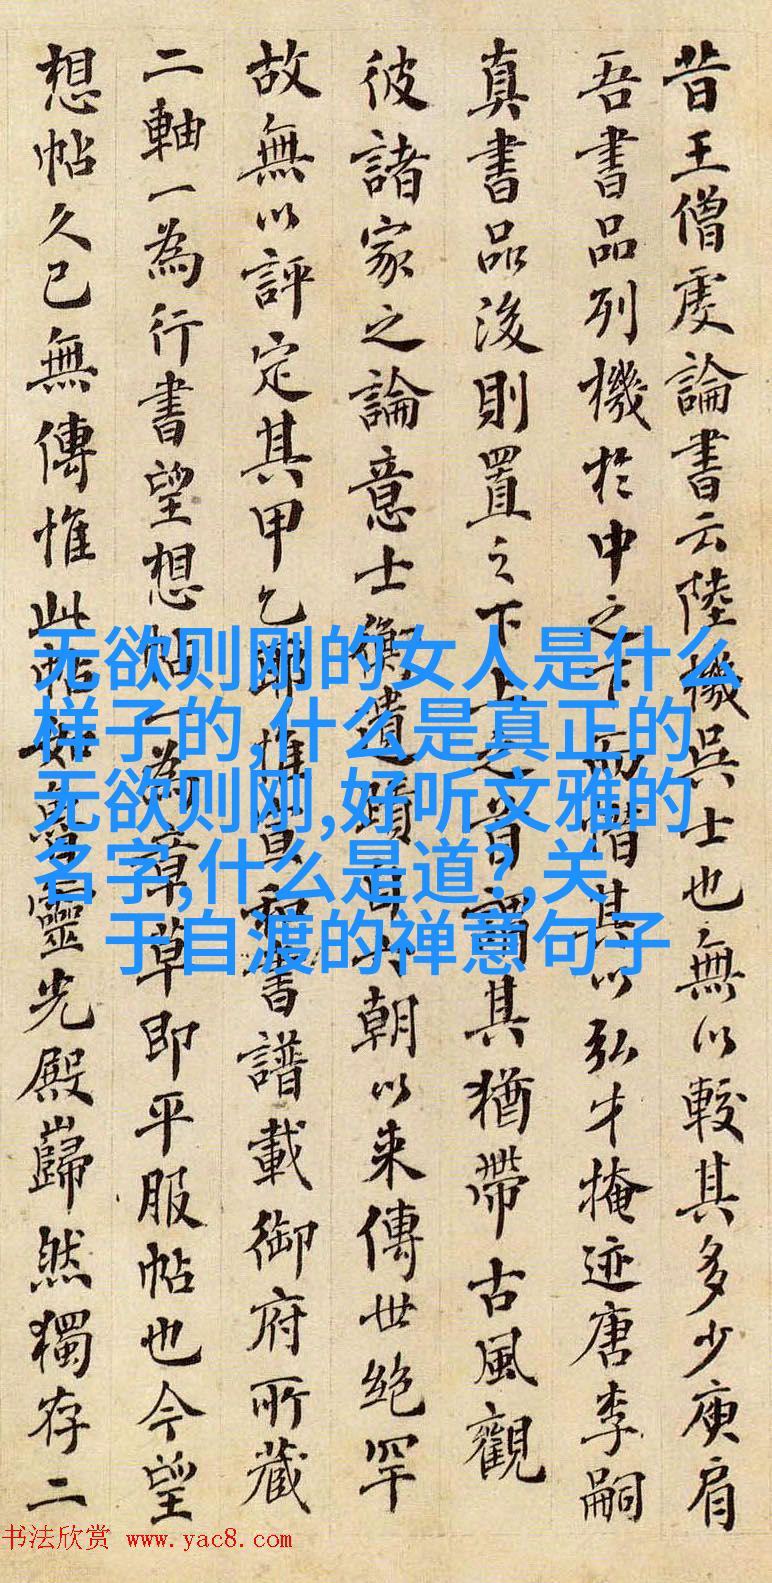 昔王僧虔論書云陸機吳士也無以較其多少庾肩
吾書品列機於中之下而惜其以弘才掩迹唐李嗣
真書品後則置之下上之首謂其猶帶古風觀
彼諸家之論意士衡遺蹟自六朝以来傳世絶罕
故無以評定其甲乙耶惟宣和書譜載御府所藏
二軸一為行書望想帖一為章草即平服帖也今望
想帖久已無傳惟此帖如魯靈光殿巋然獨存二
无欲则刚的女人是什么
样子的,什么是真正的
无欲则刚,好听文雅的
名字,什么是道?,关
于自渡的禅意句子
书法欣赏 www.yac8.com